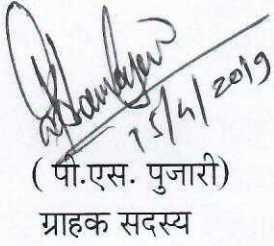 15/4/2019
( पी.एस. पुजारी)
ग्राहक सदस्य